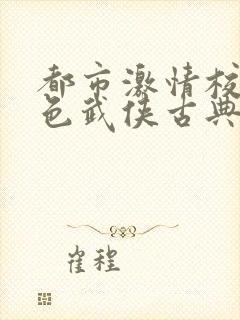 都市激情校
色武侠古典
崔程